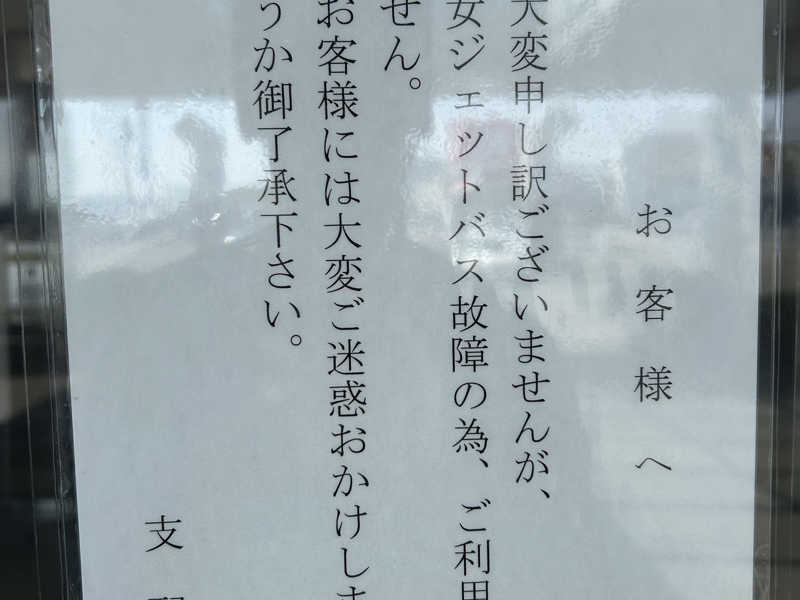 お客様へ
大変申し訳ございませんが、
女ジェットバス故障の為、ご利用
せん。
お客様には大変ご迷惑おかけしま
うか御了承下さい。
支